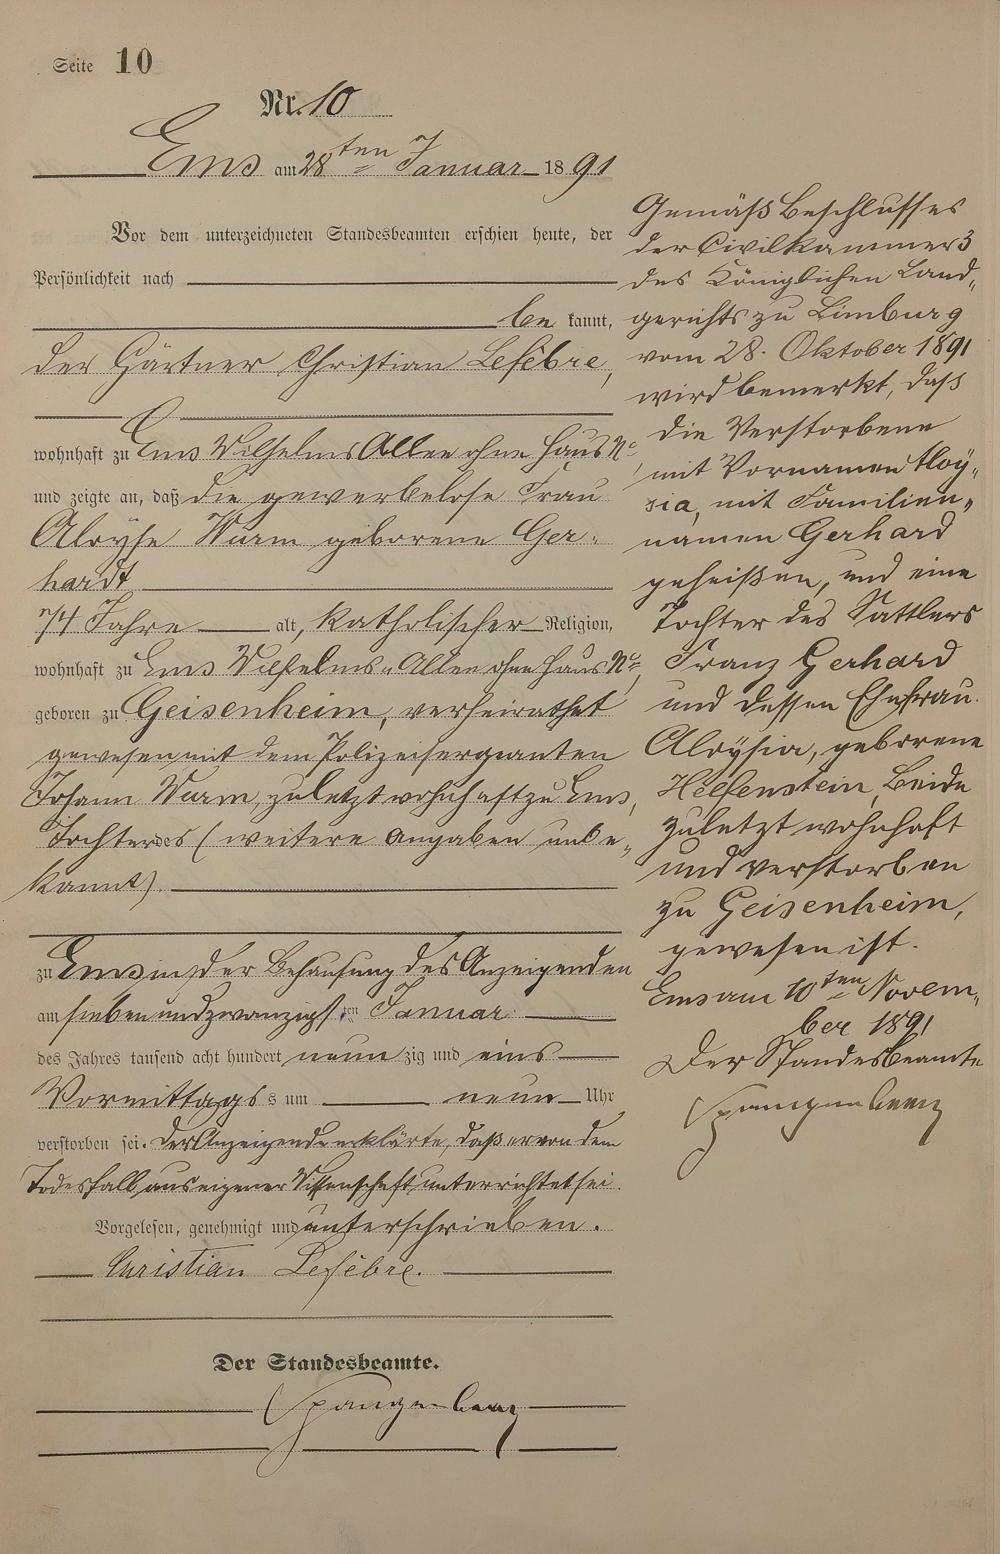 Seite 10
Nr. 10
Ems am 28ten Januar 1891
Vor dem unterzeichneten Standesbeamten erschien heute, der
Persönlichkeit nach
be kannt,
der Gärtner Christian Lefèbre,
wohnhaft zu Ems Wilhelms Allee ohne Haus No
und zeigte an, daß die gewerbelose Frau
Aloyse Wurm geborene Ger-
hardt
74 Jahre alt, katholischer Religion,
wohnhaft zu Ems Wilhelms-Allee ohne Haus No,
geboren zu Geisenheim, verheirathet
gewesen mit dem Polizeisergeanten
Johann Wurm, zuletzt wohnhaft zu Ems,
Tochter des (weitere Angaben unbe-
kannt)
zu Ems in der Behausung des Anzeigenden
am sieben und zwanzigsten Januar
des Jahres tausend acht hundert neunzig und eins
Vormittags um neun Uhr
verstorben sei. Der Anzeigende erklärte, daß er von dem
Todesfall aus eigener Wissenschaft unterrichtet sei.
Vorgelesen, genehmigt und unterschrieben.
Christian Lefèbre.
Der Standesbeamte.
Spangenberg
Gemäß Beschlusses
der Civilkammer 3
des Königlichen Land-
gerichts zu Limburg
vom 28. Oktober 1891
wird bemerkt, daß
die Verstorbene
mit Vornamen Aloy-
sia, mit Familien-
namen Gerhard
geheißen, und eine
Tochter des Sattlers
Franz Gerhard
und dessen Ehefrau
Aloysia, geborene
Helfenstein, Beide
zuletzt wohnhaft
und verstorben
zu Geisenheim,
gewesen ist.
Ems am 10ten Novem-
ber 1891
Der Standesbeamte
Spangenberg